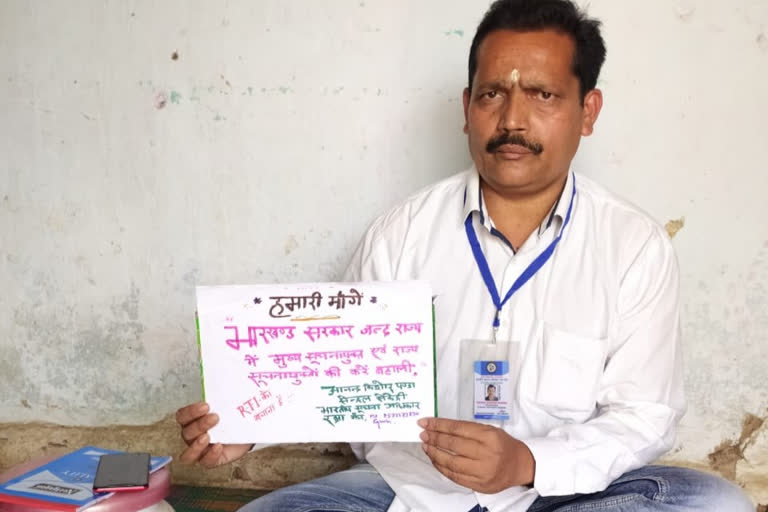 * हमारी मांगें *
झारखण्ड सरकार जल्द राज्य
में मुख्य सूचनायुक्त एवं राज्य
सूचनायुक्तों की करें बहाली.
RTI को
बचाना है
आनन्द किशोर पण्डा
भारतीय सूचना अधिकार
रक्षा मंच